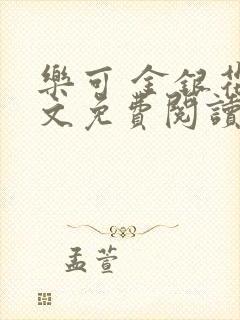 樂可 金銀花
文免費閱讀
孟萱